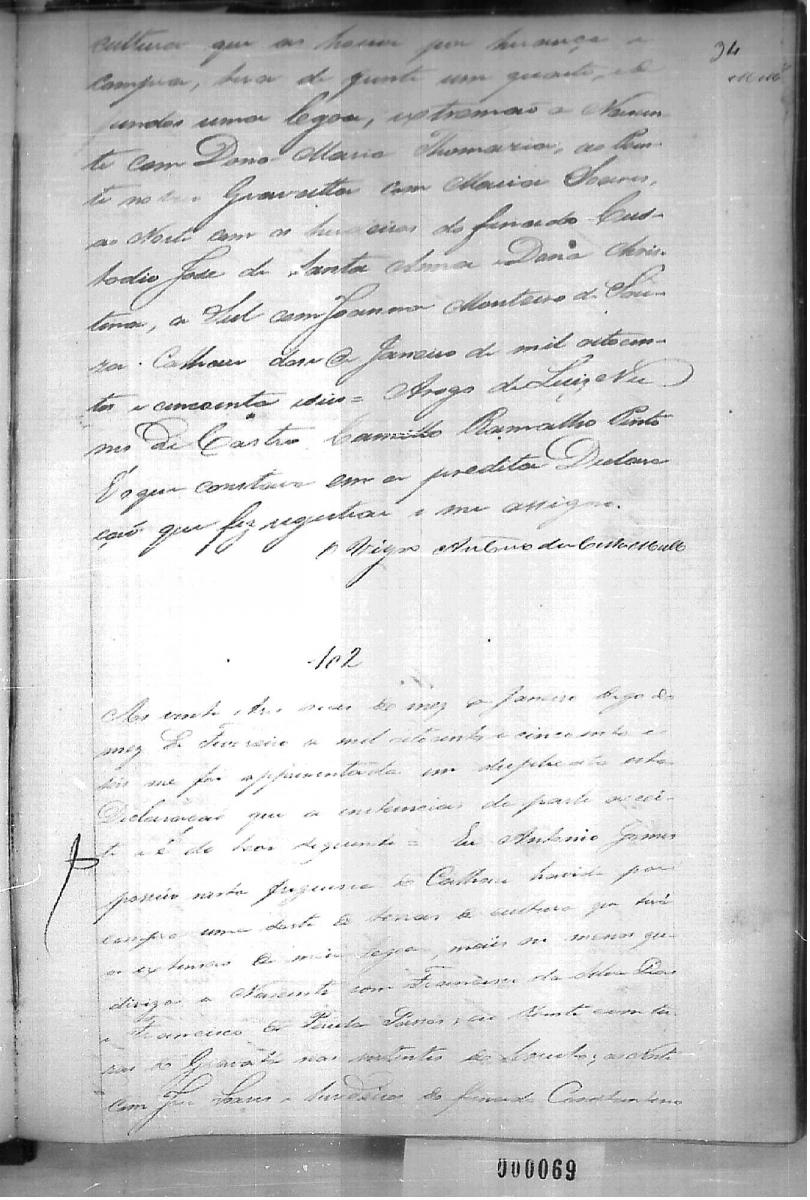 34
cultura que as houve por herança e
compra, tera de frente um quarto, e de
fundos uma legoa, extremao a Nascen-
te com Dona Maria Thomazia, ao Poen-
te no Gravatta com Maria Soares,
ao Norte com os herdeiros do finado Cus-
todio Jose de Santa Anna Dona Chris-
tina, a Sul com Joanna Monteiro de Sou-
za. Calhau dose de Janeiro de mil oitocen-
tos e cincoenta e seis = Arogo de Luiz Nu
nes De Castro Camillo Ramalho Pinto
E's que constava em a predita Declara
ção que fiz registrar e me assigno.
O Vigro Antonio da Costa Mello
102
Aos vinte dias do mez de Janeiro digo do
mez de Fevereiro de mil oitocentos e cincoenta e
seis me foi appresentada em duplicata esta
Declaração que a instancias da parte acei-
tei e é do teor seguinte = Eu Antonio Gomes
possuo nesta freguesia do Calhau havida por
compra uma parte de terras de cultura que terá
a extensão de meia legoa, mais ou menos que
diviza a Nascente com Francisco da Silva Dias
e Francisco de Paula Passos, ao Poente com ter
ras do Gravatá nas vertentes do ; ao Norte
com José Soares e herdeiros do finado Constantino
000069